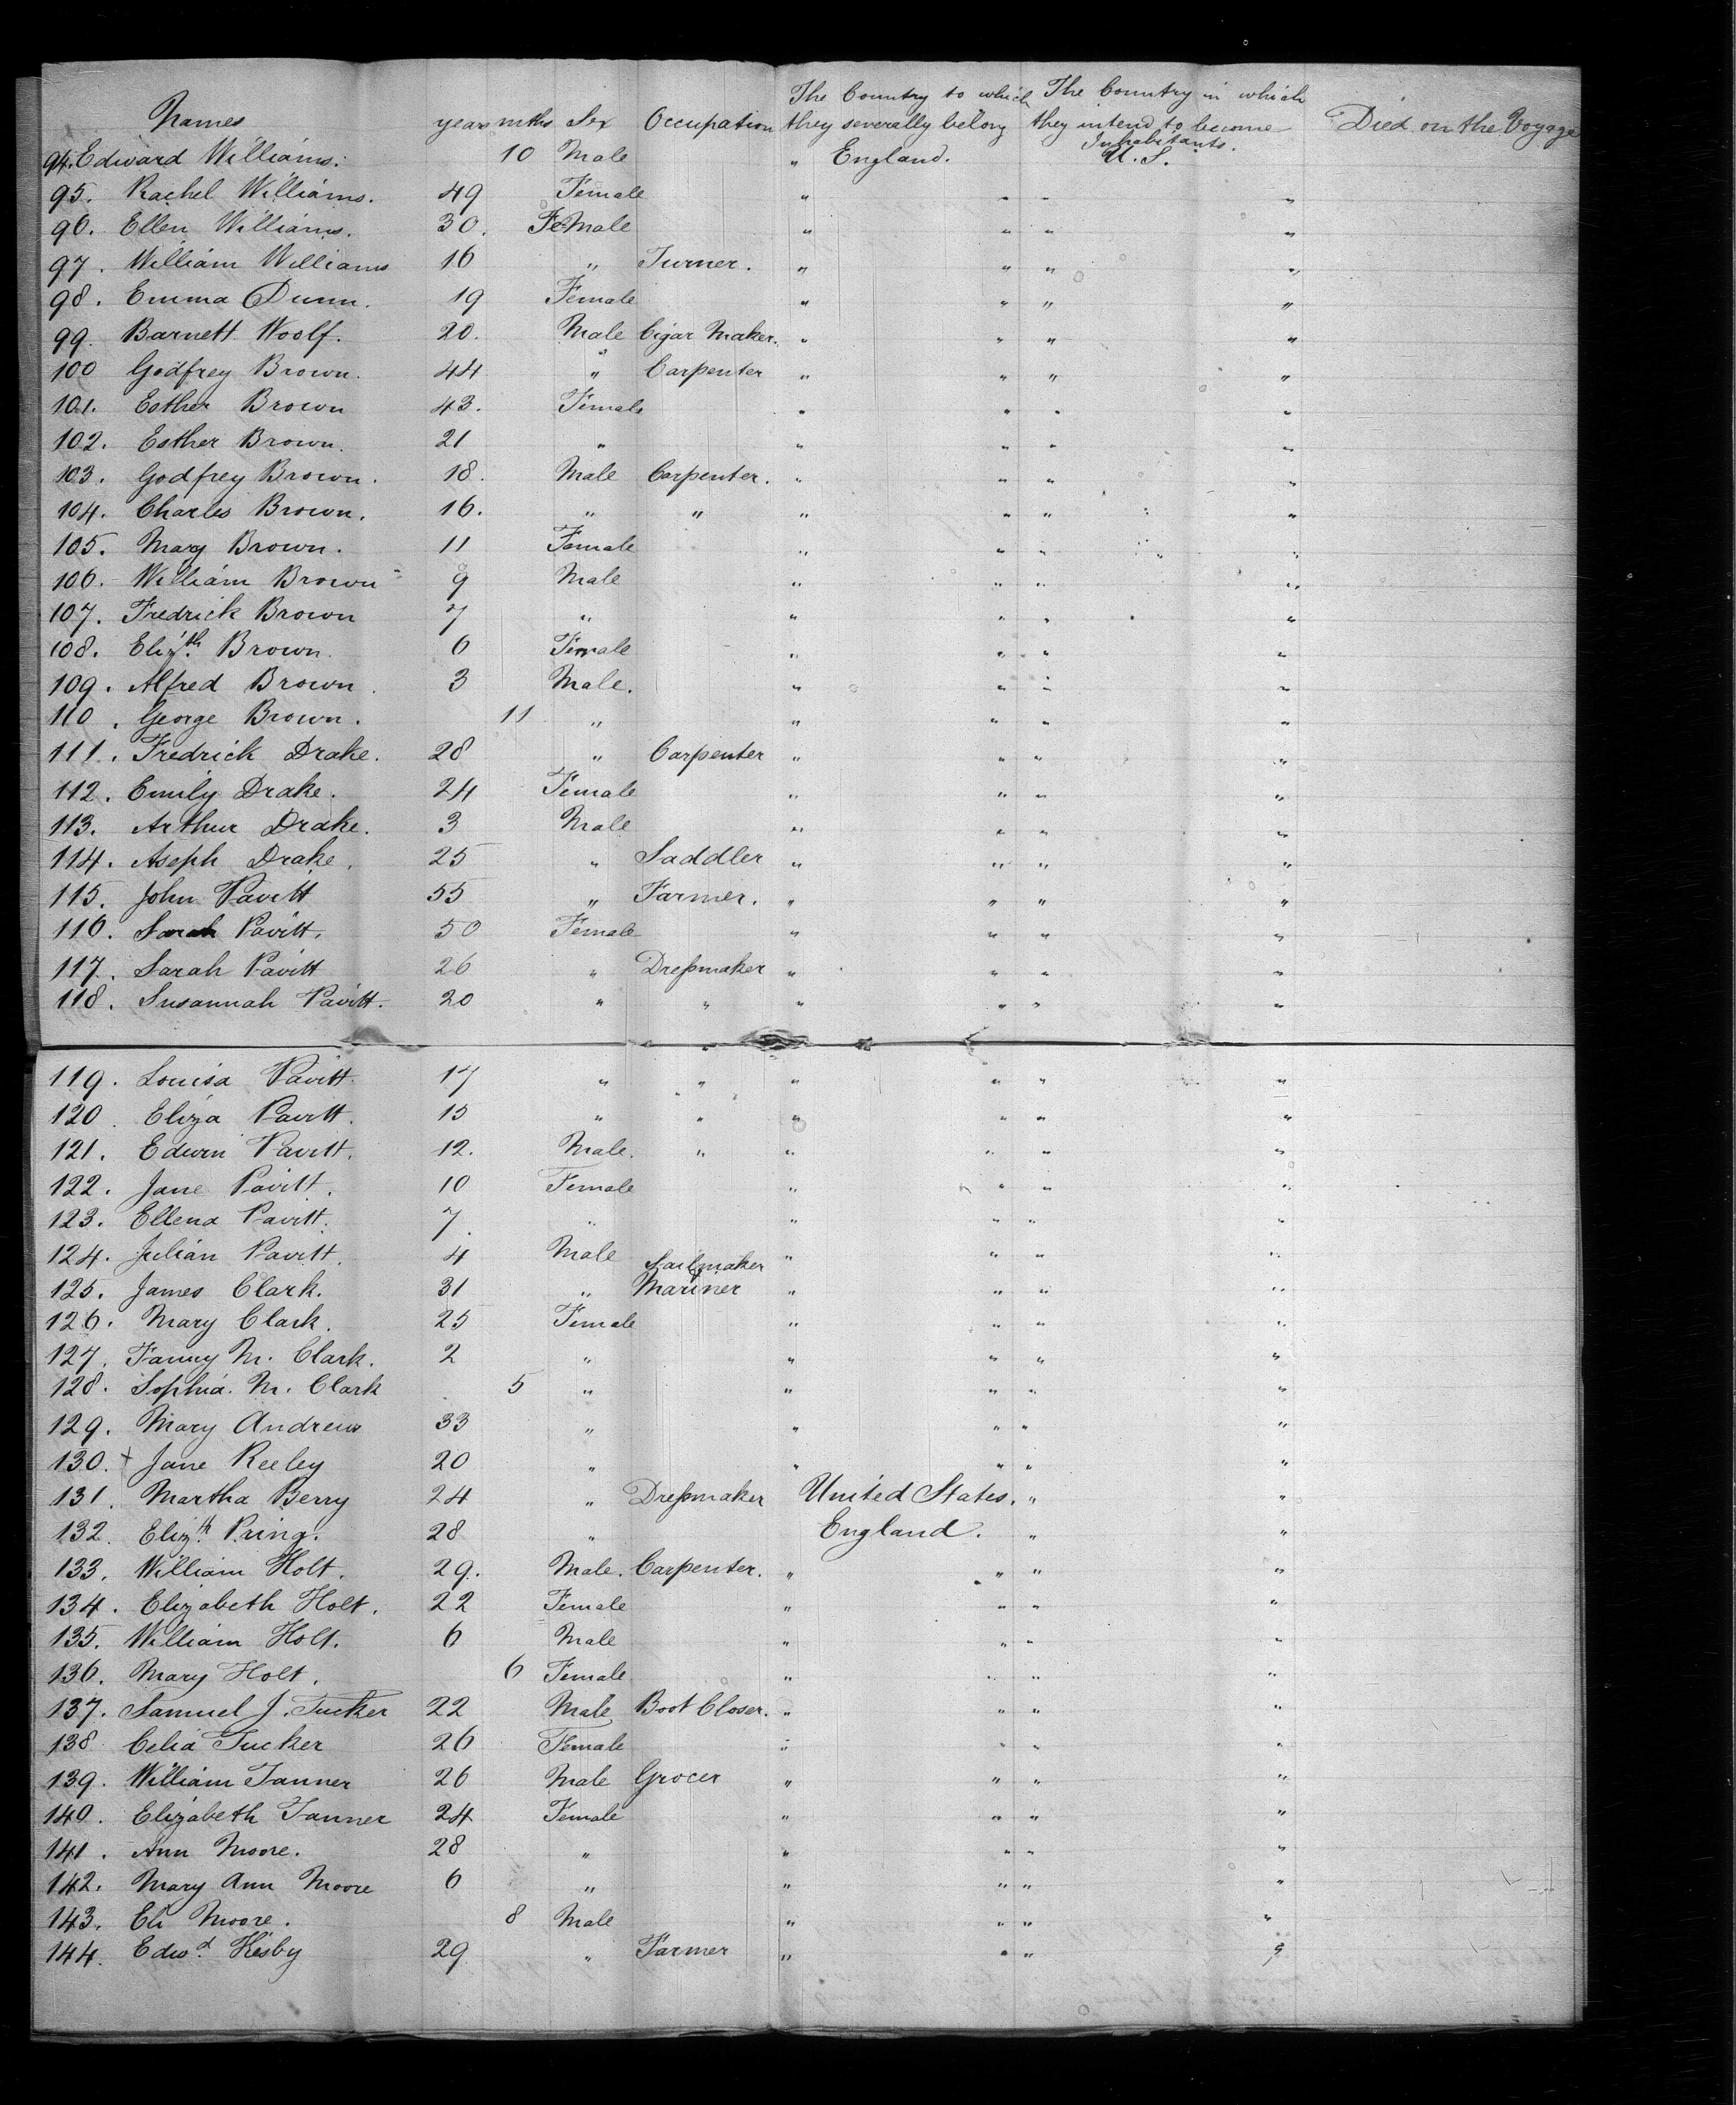 Names years mths Sex Occupation The Country to which they severally belong The Country in which they intend to become Inhabitants. Died on the Voyage
94. Edward Williams. 10 Male " England. U. S.
95. Rachel Williams. 49 Female " " " "
96. Ellen Williams. 30. FeMale " " " "
97. William Williams 16 " Turner. " " " "
98. Emma Dunn. 19 Female " " " "
99. Barnett Woolf. 20. Male Cigar Maker. " " " "
100 Godfrey Brown. 44 " Carpenter " " " "
101. Esther Brown 43. Female " " " "
102. Esther Brown. 21 " " " " "
103. Godfrey Brown. 18. Male Carpenter. " " " "
104. Charles Brown. 16. " " " " " "
105. Mary Brown. 11 Female " " " "
106. William Brown 9 Male " " " "
107. Fredrick Brown 7 " " " " "
108. Elizth. Brown. 6 Female " " " "
109. Alfred Brown. 3 Male. " " " "
110. George Brown. 11 " " " " "
111. Fredrick Drake. 28 " Carpenter " " " "
112. Emily Drake. 24 Female " " " "
113. Arthur Drake. 3 Male " " " "
114. Aseph Drake. 25 " Saddler " " " "
115. John Pavitt 55 " Farmer. " " " "
116. Sarah Pavitt. 50 Female " " " "
117. Sarah Pavitt 26 " Dressmaker " " " "
118. Susannah Pavitt. 20 " " " " " "
119. Louisa Pavitt. 17 " " " " " "
120. Eliza Pavitt. 15 " " " " " "
121. Edwin Pavitt. 12. Male. " " " " "
122. Jane Pavitt. 10 Female " " " "
123. Ellena Pavitt. 7. " " " " "
124. Julian Pavitt. 4 Male " " " "
125. James Clark. 31 " Sailmaker Mariner " " " "
126. Mary Clark. 25 Female " " " "
127. Fanny M. Clark. 2 " " " " "
128. Sophia. M. Clark 5 " " " " "
129. Mary Andrews 33 " " " " "
130. + Jane Reeley 20 " " " " "
131. Martha Berry 24 " Dressmaker United States. " "
132. Elizth. Pring. 28 " England. " "
133. William Holt. 29. Male. Carpenter. " " " "
134. Elizabeth Holt. 22 Female " " " "
135. William Holt. 6 Male " " " "
136. Mary Holt. 6 Female " " " "
137. Samuel J. Tucker 22 Male Boot Closer. " " " "
138 Celia Tucker 26 Female " " " "
139. William Tanner 26 Male Grocer " " " "
140. Elizabeth Tanner 24 Female " " " "
141. Ann Moore. 28 " " " " "
142. Mary Ann Moore 6 " " " " "
143. Eli Moore. 8 Male " " " "
144. Edwd. Hesby 29 " Farmer " " " "